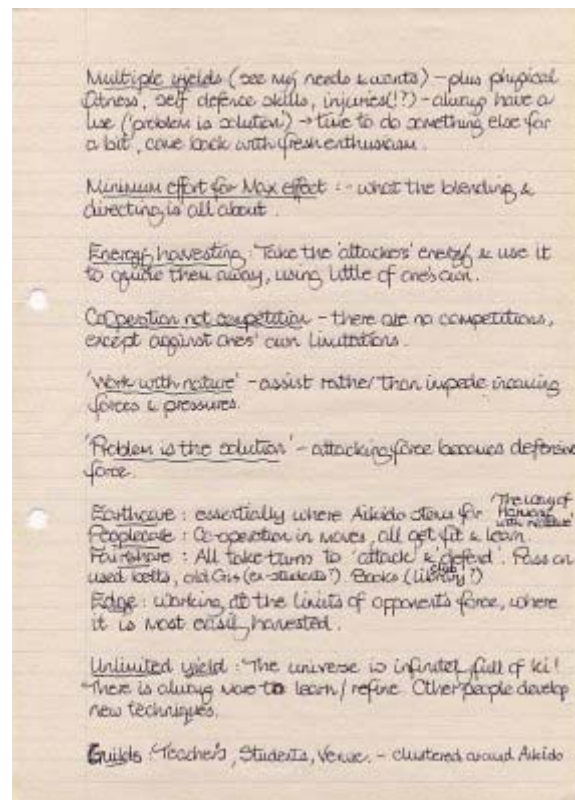 Multiple yields (see my needs & wants) – plus physical
fitness, self defence skills, injuries(!?) – always have a
use ('problem is solution') → time to do something else for
a bit, come back with fresh enthusiasm.
Minimum effort for Max effect : - what the blending &
directing is all about.
Energy harvesting : Take the 'attackers' energy & use it
to guide them away, using little of one's own.
Cooperation not competition – there are no competitions,
except against ones' own limitations.
'Work with nature' – assist rather than impede incoming
forces & pressures.
'Problem is the solution' – attacking force becomes defensive
force.
Earthcare : essentially where Aikido stems for 'The way of
Harmony
with nature'
Peoplecare : Co-operation in moves, all get fit & learn
Fairshare : All take turns to 'attack' & 'defend'. Pass on
used belts, old Gis (ex-students?) Books (club library?)
Edge : working at the limits of opponents force, where
it is most easily harvested.
Unlimited yield : The universe is infinitely full of ki!
There is always more to learn / refine. Other people develop
new techniques.
Guilds : Teachers, Students, Venue. – clustered around Aikido